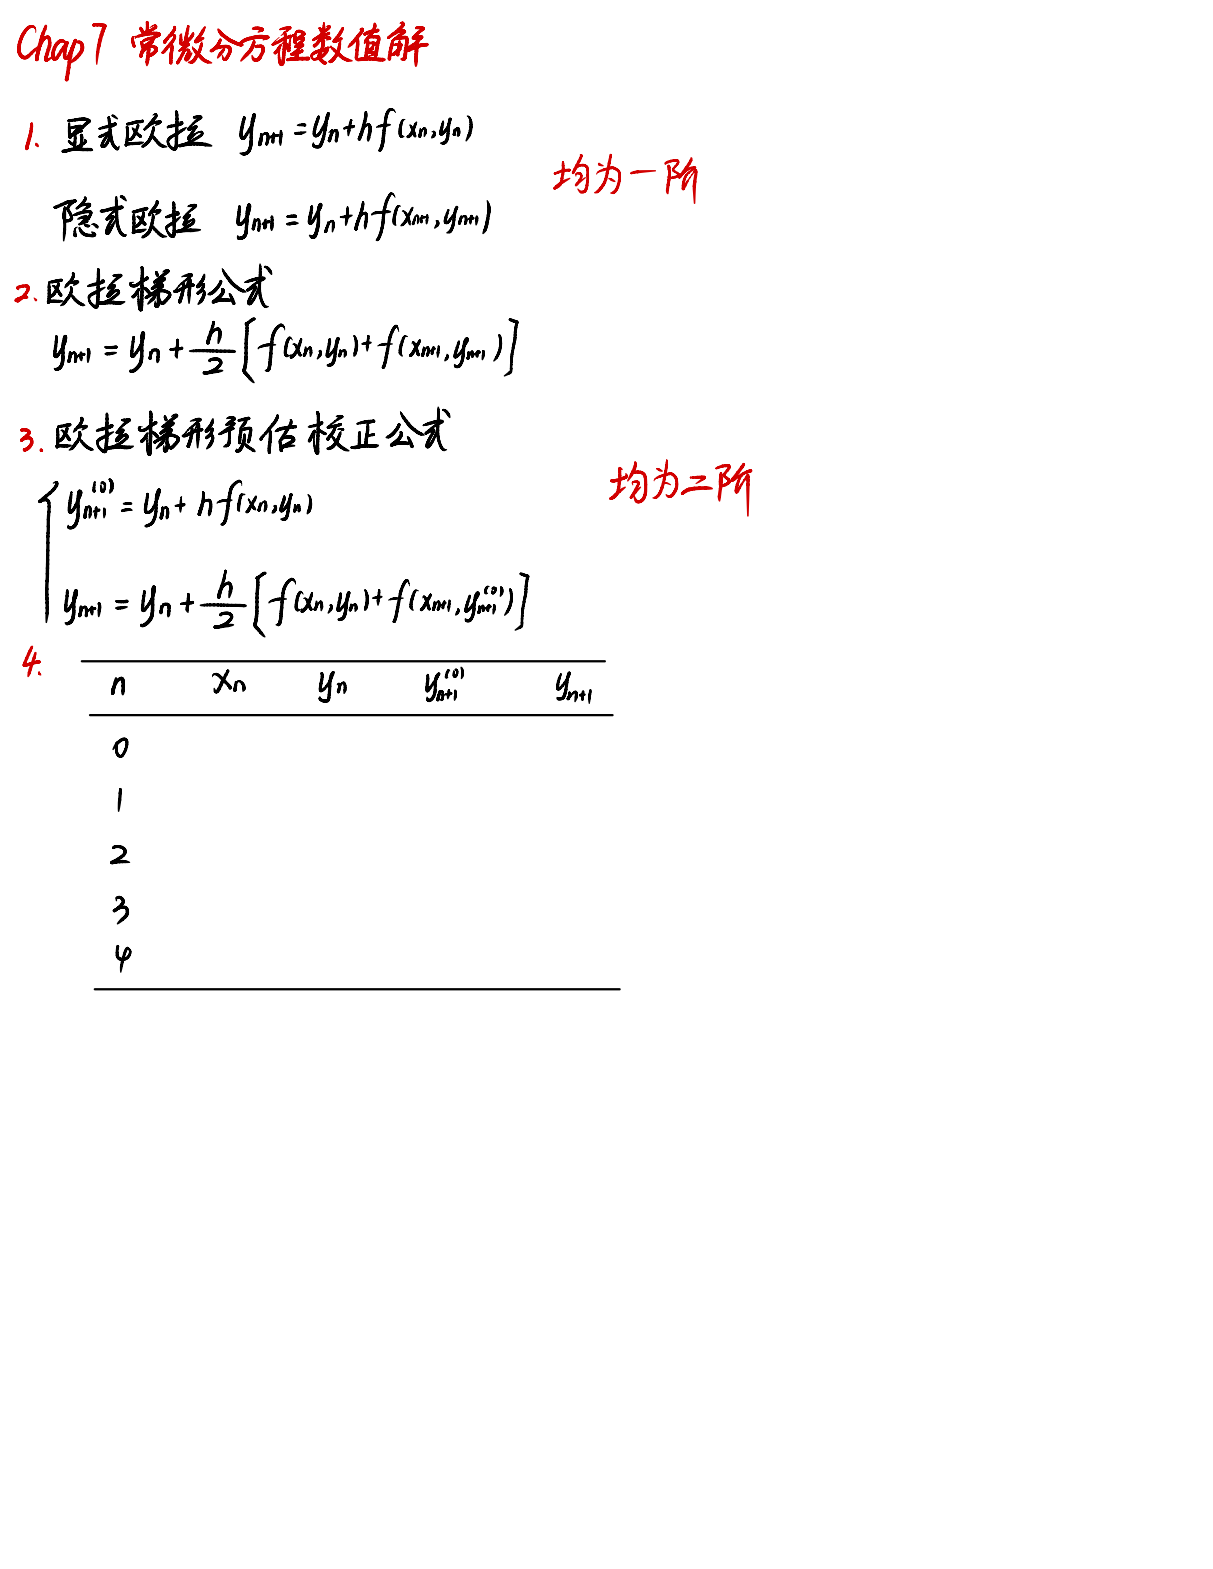 Chap 7 常微分方程数值解
1. 显式欧拉 yₙ₊₁ = yₙ + hf(xₙ, yₙ)
均为一阶
隐式欧拉 yₙ₊₁ = yₙ + hf(xₙ₊₁, yₙ₊₁)
2. 欧拉梯形公式
yₙ₊₁ = yₙ + h/2 [f(xₙ, yₙ) + f(xₙ₊₁, yₙ₊₁)]
3. 欧拉梯形预估校正公式
均为二阶
yₙ₊₁⁽⁰⁾ = yₙ + hf(xₙ, yₙ)
yₙ₊₁ = yₙ + h/2 [f(xₙ, yₙ) + f(xₙ₊₁, yₙ₊₁⁽⁰⁾)]
4.
n xₙ yₙ yₙ₊₁⁽⁰⁾ yₙ₊₁
0
1
2
3
4